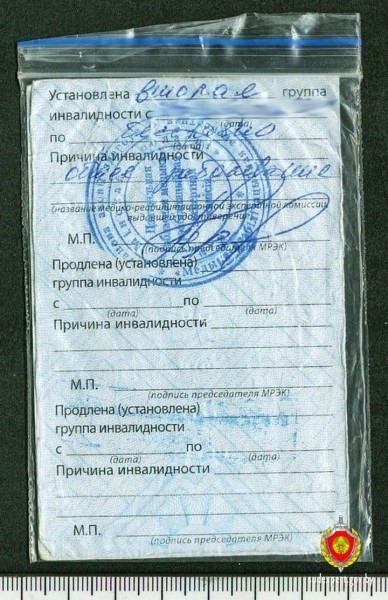 Установлена вторая группа
инвалидности с
(дата)
по бессрочно
(дата)
Причина инвалидности
общее заболевание
(название медико-реабилитационной экспертной комиссии,
выдавшей удостоверение)
М.П.
(подпись председателя МРЭК)
Продлена (установлена)
группа инвалидности
с по
(дата) (дата)
Причина инвалидности
М.П.
(подпись председателя МРЭК)
Продлена (установлена)
группа инвалидности
с по
(дата) (дата)
Причина инвалидности
М.П.
(подпись председателя МРЭК)